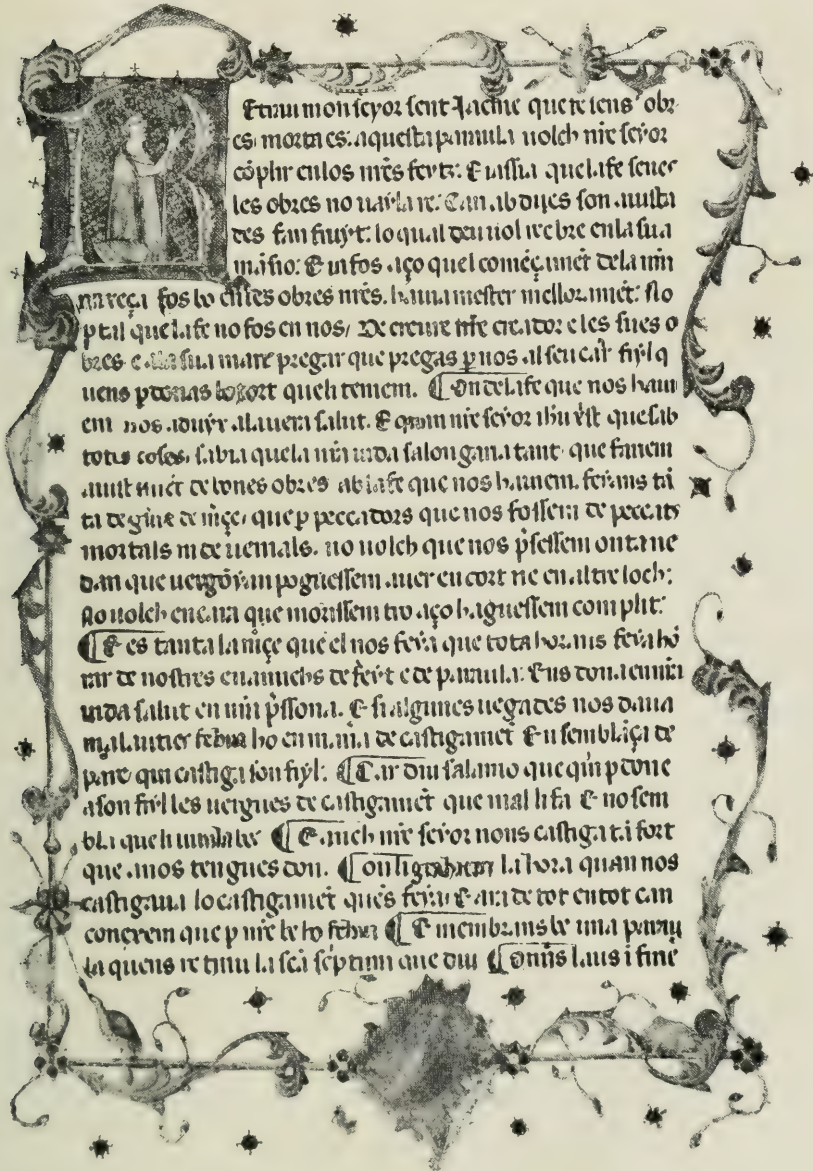 Etrau mon seyor sent Jacme que fe sens obr
es morta es. aquesta paraula volch nre seyor
cōplir en los nr̄es feyts. E iassia que la fe senes
les obres no vayla re. Can abdues son aiusta
des fan fruyt. lo qual deu vol reebre en la sua
māsio. E ia fos aço quel comēçamēt de la nr̄a
naxēça fos bo en les obres nr̄es. hauia mester melloramēt. No
p tal que la fe no fos en nos. De creure nr̄e creador e les sues o
bres e a la sua mare pregar que pregas p nos al seu car fiyl q
uens pdonas lo tort queli teniem. On de la fe que nos hauí
em nos aduyx a la uera salut. E quan nr̄e seyor ihu xr̄st que sab
totes coses. sabia que la nr̄a uida salongaria tant que fariem
aiustamēt de bones obres ab la fe que nos hauiem. feyans tā
ta de gr̄ia de m̄çe. que p peccadors que nos fossem de peccats
mortals ni de uenials. no uolch que nos p̄sessem onta ne
dan que uergoyan poguessem auer en cort ne en altre loch.
No uolch encara que morissem tro aço haguessem complit.
E es tanta la m̄çe que el nos feya que tota hora nos feya hō
rar de nostres enamichs de feyt e de paraula. Ens dona en nr̄a
uida salut en nr̄a p̄ssona. E si algunes uegades nos daua
malauties febra ho en manera de castigamēt En semblāça de
pare qui castiga son fiyl. Car diu salamo que qui pdone
a son fiyl les uergues de castigamēt que mal li fa E no sem
bla queli uuylla be E anch nr̄e seyor nons castiga tā fort
que a nos tengues dan. la hora quan nos
castigaua lo castigamēt quens feya. E ara de tot en tot can
conexem que p nr̄e be ho febra E membrans be una parau
la quens retrau la scā sc̄ptura que diu Omīs laus i fine